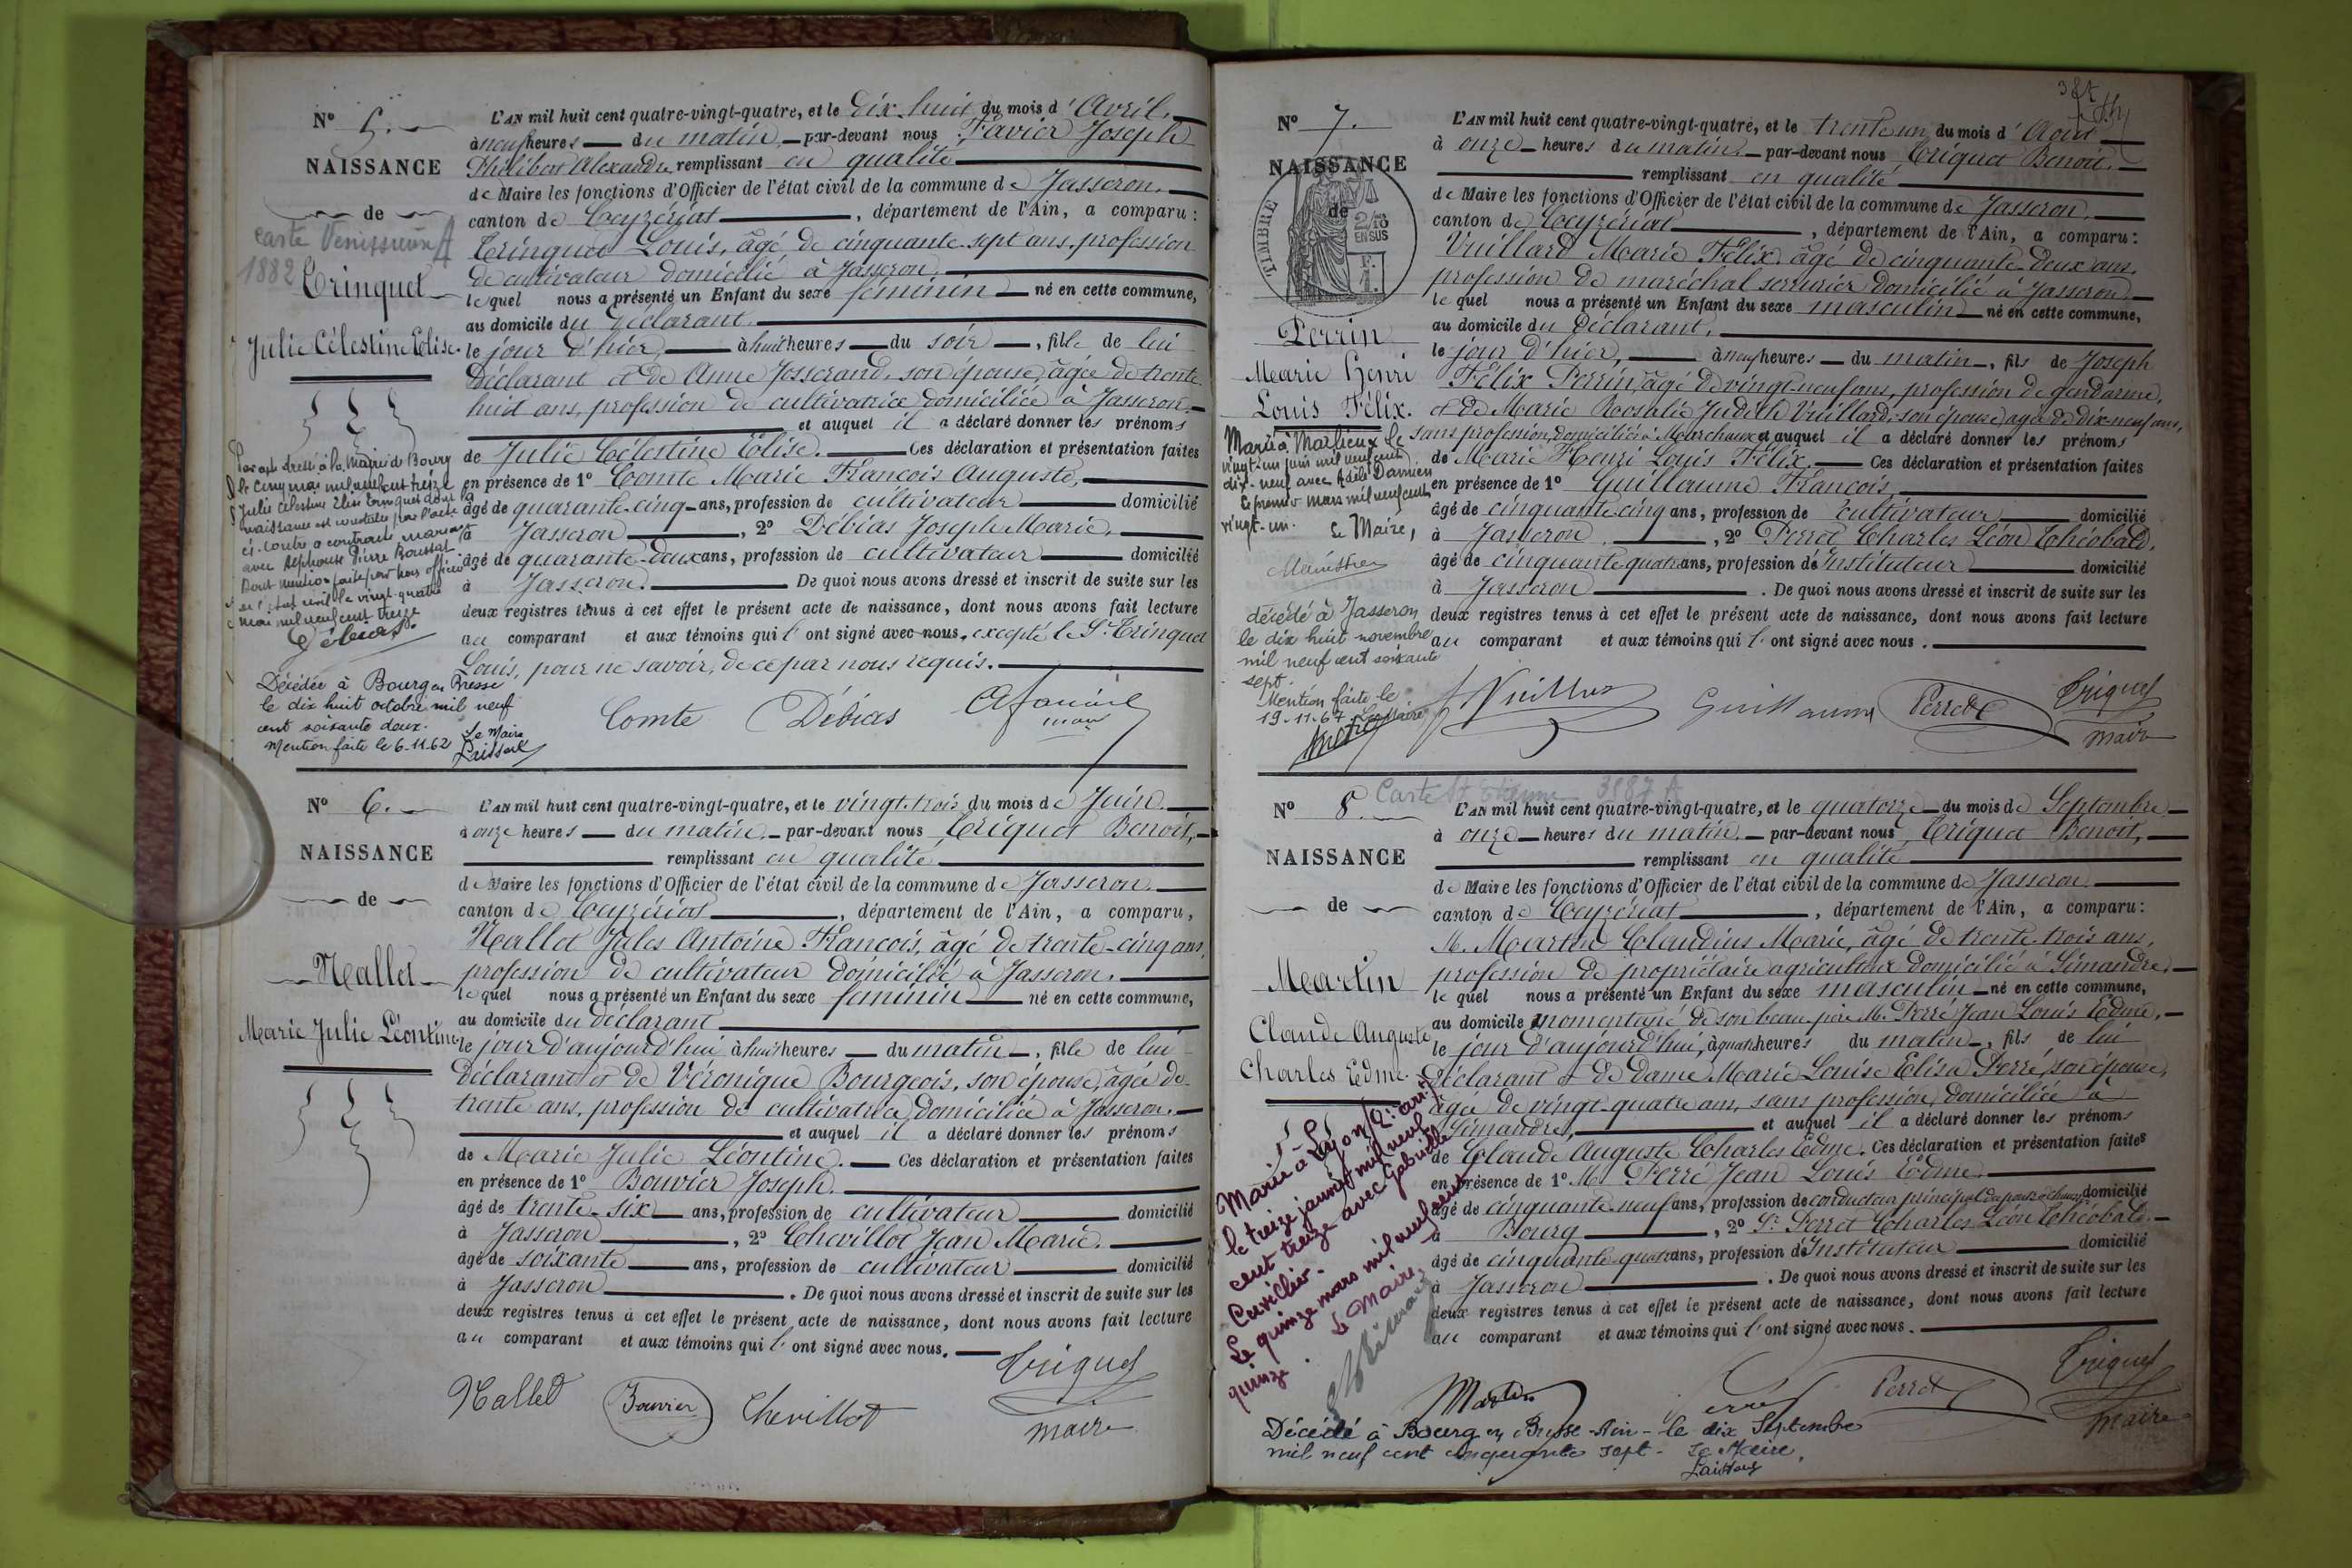 N° 5.
NAISSANCE
de
Carte Vénissieux A
1882
Trinquet
Julie Célestine Elise.
Par acte dressé à la Mairie de Bourg
le cinq mai mil neuf cent treize
Julie Célestine Elise Trinquet dont la
naissance est constatée par l'acte
ci-contre a contracté mariage
avec Alphonse Pierre Roussat
Dont mention faite par nous officier
de l'état civil le vingt-quatre
mai mil neuf cent treize
Débias
Décédée à Bourg en Bresse
le dix huit octobre mil neuf
cent soixante deux.
Mention faite le 6-11-62
Le Maire
L'AN mil huit cent quatre-vingt-quatre, et le dix-huit du mois d'Avril,
à neuf heures du matin, par-devant nous Favier Joseph
Philibert Alexandre remplissant en qualité
de Maire les fonctions d'Officier de l'état civil de la commune de Jasseron,
canton de Ceyzériat, département de l'Ain, a comparu :
Trinquet Louis, âgé de cinquante-sept ans, profession
de cultivateur domicilié à Jasseron,
lequel nous a présenté un Enfant du sexe féminin né en cette commune,
au domicile du déclarant.
le jour d'hier, à huit heures du soir, fille de lui
déclarant et de Anne Josserand, son épouse, âgée de trente
huit ans, profession de cultivatrice domiciliée à Jasseron.
et auquel il a déclaré donner les prénoms
de Julie Célestine Elise. Ces déclaration et présentation faites
en présence de 1° Comte Marie François Auguste,
âgé de quarante-cinq ans, profession de cultivateur domicilié
à Jasseron, 2° Débias Joseph Marie,
âgé de quarante-deux ans, profession de cultivateur domicilié
à Jasseron. De quoi nous avons dressé et inscrit de suite sur les
deux registres tenus à cet effet le présent acte de naissance, dont nous avons fait lecture
au comparant et aux témoins qui l'ont signé avec nous, excepté le Sr Trinquet
Louis, pour ne savoir, de ce par nous requis.
Comte Débias A favier
maire
N° 6.
NAISSANCE
de
Nallet
Marie Julie Léontine
L'AN mil huit cent quatre-vingt-quatre, et le vingt-trois du mois de Juin
à onze heures du matin, par-devant nous Triquet Benoit,
remplissant en qualité
de Maire les fonctions d'Officier de l'état civil de la commune de Jasseron
canton de Ceyzériat, département de l'Ain, a comparu,
Nallet Jules Antoine François, âgé de trente-cinq ans,
profession de cultivateur domicilié à Jasseron.
lequel nous a présenté un Enfant du sexe féminin né en cette commune,
au domicile du déclarant
le jour d'aujourd'hui à huit heures du matin, fille de lui
déclarant et de Véronique Bourgeois, son épouse, âgée de
trente ans, profession de cultivatrice domiciliée à Jasseron.
et auquel il a déclaré donner les prénoms
de Marie Julie Léontine. Ces déclaration et présentation faites
en présence de 1° Bouvier Joseph.
âgé de trente-six ans, profession de cultivateur domicilié
à Jasseron, 2° Chevillot Jean Marie.
âgé de soixante ans, profession de cultivateur domicilié
à Jasseron. De quoi nous avons dressé et inscrit de suite sur les
deux registres tenus à cet effet le présent acte de naissance, dont nous avons fait lecture
au comparant et aux témoins qui l'ont signé avec nous.
Nallet Bouvier Chevillot Triquet
maire
N° 7.
NAISSANCE
de
TIMBRE
2/10
EN SUS
Perrin
Marie Henri
Louis Félix.
Marié à Marlieux le
vingt-un juin mil neuf cent
dix-neuf avec Adèle Damien
Le premier mars mil neuf cent
vingt-un.
Le Maire,
décédé à Jasseron
le dix huit novembre
mil neuf cent soixante
sept.
Mention faite le
19-11-67 Le Maire
L'AN mil huit cent quatre-vingt-quatre, et le trente un du mois d'Août
à onze heures du matin, par-devant nous Triquet Benoit,
remplissant en qualité
de Maire les fonctions d'Officier de l'état civil de la commune de Jasseron,
canton de Ceyzériat, département de l'Ain, a comparu :
Vuillard Marie Félix, âgé de cinquante-deux ans,
profession de maréchal serrurier domicilié à Jasseron
lequel nous a présenté un Enfant du sexe masculin né en cette commune,
au domicile du Déclarant,
le jour d'hier, à neuf heures du matin, fils de Joseph
Félix Perrin, âgé de vingt-neuf ans, profession de gendarme,
et de Marie Roosalie Judith Vuillard, son épouse, âgée de dix-neuf ans,
sans profession, domiciliée à Marchaux et auquel il a déclaré donner les prénoms
de Marie Henri Louis Félix, Ces déclaration et présentation faites
en présence de 1° Guillaume François
âgé de cinquante-cinq ans, profession de cultivateur domicilié
à Jasseron, 2° Perret Charles Léon Théobald,
âgé de cinquante quatre ans, profession d'Instituteur domicilié
à Jasseron. De quoi nous avons dressé et inscrit de suite sur les
deux registres tenus à cet effet le présent acte de naissance, dont nous avons fait lecture
au comparant et aux témoins qui l'ont signé avec nous.
Guillaume Perret Triquet
maire
N° 8.
Carte St Etienne 3987 A
NAISSANCE
de
Martin
Claude Auguste
Charles Edme.
Marié à Lyon (2e arrt)
le treize janvier mil neuf
cent treize avec Gabrielle
Cuvillier.
Le quinze mars mil neuf cent
quinze.
Le Maire,
L'AN mil huit cent quatre-vingt-quatre, et le quatorze du mois de Septembre
à onze heures du matin, par-devant nous, Triquet Benoit,
remplissant en qualité
de Maire les fonctions d'Officier de l'état civil de la commune de Jasseron
canton de Ceyzériat, département de l'Ain, a comparu :
M. Martin Claudius Marie, âgé de trente-trois ans,
profession de propriétaire agriculteur domicilié à Simandre,
lequel nous a présenté un Enfant du sexe masculin né en cette commune,
au domicile momentané de son beau-père M. Ferré Jean Louis Edme,
le jour d'aujourd'hui, à quatre heures du matin, fils de lui
déclarant et de dame Marie Louise Elisa Ferré, son épouse,
âgée de vingt-quatre ans, sans profession, domiciliée à
Simandre, et auquel il a déclaré donner les prénoms
de Claude Auguste Charles Edme. Ces déclaration et présentation faites
en présence de 1° M. Ferré Jean Louis Edme
âgé de cinquante-neuf ans, profession de conducteur principal des ponts et chaussées domicilié
à Bourg, 2° Sr Perret Charles Léon Théobald.
âgé de cinquante-quatre ans, profession d'Instituteur domicilié
à Jasseron. De quoi nous avons dressé et inscrit de suite sur les
deux registres tenus à cet effet le présent acte de naissance, dont nous avons fait lecture
au comparant et aux témoins qui l'ont signé avec nous.
Martin Ferré Perret Triquet
maire
Décédé à Bourg en Bresse - Ain - le dix Septembre
mil neuf cent cinquante sept - Le Maire,